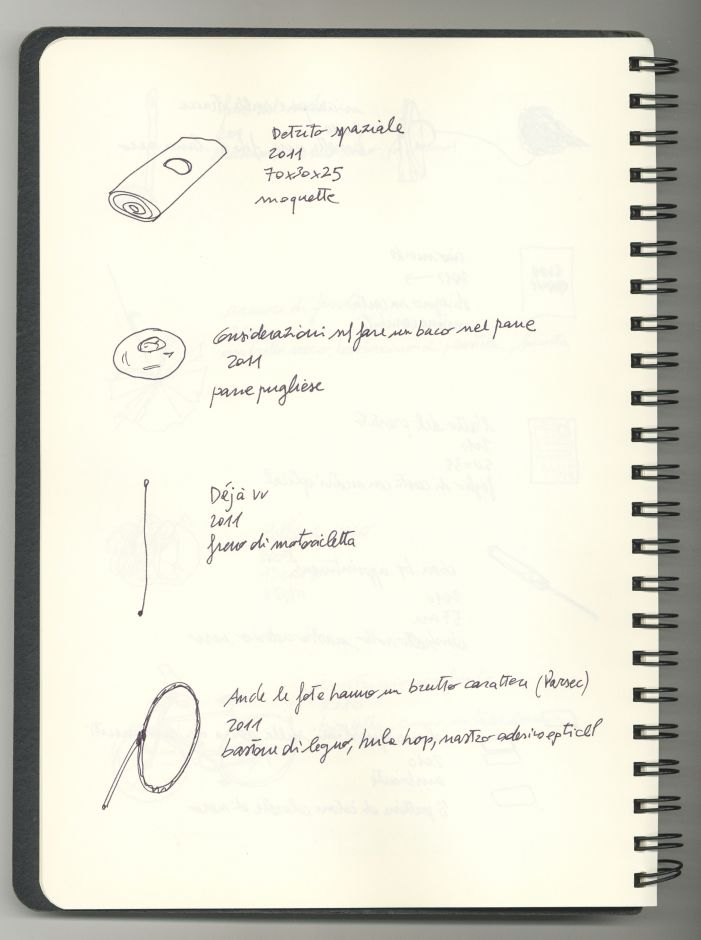 Detrito spaziale
2011
70x30x25
moquette
Considerazioni sul fare un buco nel pane
2011
pane pugliese
Déjà vu
2011
freno di motocicletta
Anche le fate hanno un brutto carattere (Parsec)
2011
bastone di legno, hula hop, nastro adesivo optical